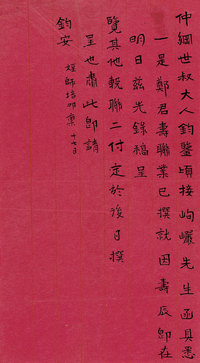 仲綱世叔大人鈞鑒頃接峋巖先生函具悉
一是鄭君壽聯業已撰就因壽辰卽在
明日茲先錄稿呈
覽其他輓聯二付定於後日撰
呈也肅此卽請
鈞安 姪師培叩稟 十六日